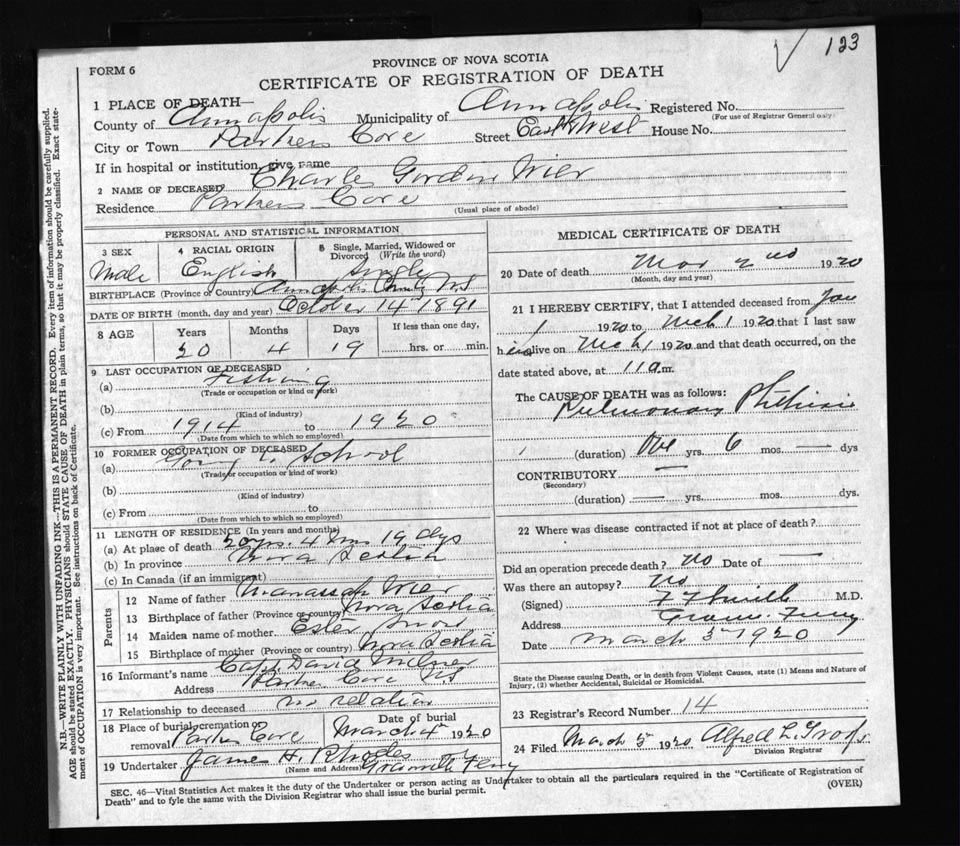 123
PROVINCE OF NOVA SCOTIA
FORM 6
CERTIFICATE OF REGISTRATION OF DEATH
1 PLACE OF DEATH—
County of Annapolis Municipality of Annapolis Registered No.
(For use of Registrar General only)
City or Town Parkers Cove Street East & West House No.
If in hospital or institution, give name
2 NAME OF DECEASED Charles Gordon Wier
Residence Parkers Cove
(Usual place of abode)
PERSONAL AND STATISTICAL INFORMATION
3 SEX 4 RACIAL ORIGIN 5 Single, Married, Widowed or Divorced (Write the word)
Male English Single
BIRTHPLACE (Province or Country) Annapolis County N S
DATE OF BIRTH (month, day and year) October 14th 1891
8 AGE Years Months Days If less than one day,
20 4 19 hrs. or min.
9 LAST OCCUPATION OF DECEASED
(a) Fishing
(Trade or occupation or kind of work)
(b)
(Kind of industry)
(c) From 1914 to 1920
(Date from which to which so employed)
10 FORMER OCCUPATION OF DECEASED
(a) Going to School
(Trade or occupation or kind of work)
(b)
(Kind of industry)
(c) From to
(Date from which to which so employed)
11 LENGTH OF RESIDENCE (In years and months)
(a) At place of death 20 yrs. 4 ms 19 dys
(b) In province Nova Scotia
(c) In Canada (if an immigrant)
Parents
12 Name of father Manassah Wier
13 Birthplace of father (Province or country) Nova Scotia
14 Maiden name of mother Ester Snow
15 Birthplace of mother (Province or country) Nova Scotia
16 Informant's name Capt David Milner
Address Parkers Cove NS
17 Relationship to deceased no relation
18 Place of burial, cremation or removal Parkers Cove Date of burial March 4th 1920
19 Undertaker James H. Rhodes Granville Ferry
(Name and Address)
MEDICAL CERTIFICATE OF DEATH
20 Date of death Mar 2nd 1920
(Month, day and year)
21 I HEREBY CERTIFY, that I attended deceased from Jan
1 1920 to Mch 1 1920 that I last saw
him alive on Mch 1 1920 and that death occurred, on the
date stated above, at 11 a.m.
The CAUSE OF DEATH was as follows:
Pulmonary Phthisis
(duration) One yrs. 6 mos. — dys
CONTRIBUTORY —
(Secondary)
(duration) — yrs. mos. — dys.
22 Where was disease contracted if not at place of death?
Did an operation precede death? No Date of —
Was there an autopsy? No
(Signed) M.D.
Address Granv Ferry
Date March 3rd 1920
State the Disease causing Death, or in death from Violent Causes, state (1) Means and Nature of
Injury, (2) whether Accidental, Suicidal or Homicidal.
23 Registrar's Record Number 14
24 Filed March 5 1920 Alfred L.
Division Registrar
SEC. 46—Vital Statistics Act makes it the duty of the Undertaker or person acting as Undertaker to obtain all the particulars required in the "Certificate of Registration of
Death" and to fyle the same with the Division Registrar who shall issue the burial permit.
(OVER)
N.B.—WRITE PLAINLY WITH UNFADING INK—THIS IS A PERMANENT RECORD. Every item of information should be carefully supplied.
AGE should be stated EXACTLY. PHYSICIANS should STATE CAUSE OF DEATH in plain terms, so that it may be properly classified. Exact state-
ment of OCCUPATION is very important. See instructions on back of Certificate.